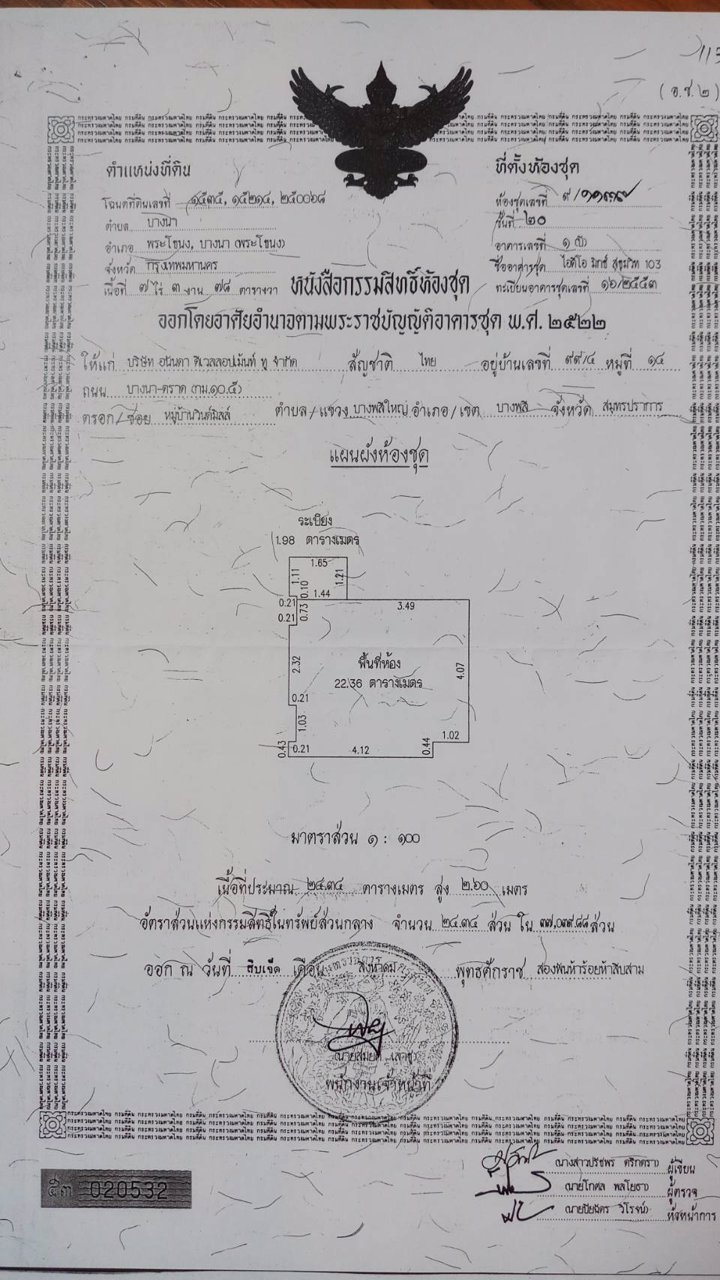 (อ.ช.๒)
ตำแหน่งที่ดิน
ที่ตั้งห้องชุด
โฉนดที่ดินเลขที่ ๑๕๓๕, ๑๕๒๑๔, ๒๕๐๐๖๘
ห้องชุดเลขที่ ๙/
ตำบล บางนา
ชั้นที่ ๒๐
อำเภอ พระโขนง, บางนา (พระโขนง)
อาคารเลขที่ ๑ (บี)
จังหวัด กรุงเทพมหานคร
ชื่ออาคารชุด ไอดีโอ มิกซ์ สุขุมวิท 103
เนื้อที่ ๗ ไร่ ๓ งาน ๗๘ ตารางวา
หนังสือกรรมสิทธิ์ห้องชุด
ทะเบียนอาคารชุดเลขที่ ๑๖/๒๕๕๓
ออกโดยอาศัยอำนาจตามพระราชบัญญัติอาคารชุด พ.ศ. ๒๕๒๒
ให้แก่ บริษัท อนันดา ดีเวลลอปเม้นท์ ทู จำกัด สัญชาติ ไทย อยู่บ้านเลขที่ ๙๙/๔ หมู่ที่ ๑๔
ถนน บางนา-ตราด (กม.๑๐.๕)
ตรอก/ซอย หมู่บ้านวินด์มิลล์ ตำบล/แขวง บางพลีใหญ่ อำเภอ/เขต บางพลี จังหวัด สมุทรปราการ
แผนผังห้องชุด
ระเบียง
1.98 ตารางเมตร
1.65
1.11
1.21
0.10
1.44
0.21
0.73
3.49
0.21
2.32
พื้นที่ห้อง
22.36 ตารางเมตร
4.07
0.21
1.03
0.43
0.21
4.12
0.44
1.02
มาตราส่วน ๑ : ๑๐๐
เนื้อที่ประมาณ ๒๔.๓๔ ตารางเมตร สูง ๒.๖๐ เมตร
อัตราส่วนแห่งกรรมสิทธิ์ในทรัพย์ส่วนกลาง จำนวน ๒๔.๓๔ ส่วน ใน ๓๗,๐๓๙.๘๘ ส่วน
ออก ณ วันที่ สิบเจ็ด เดือน สิงหาคม พุทธศักราช สองพันห้าร้อยห้าสิบสาม
พนักงานเจ้าหน้าที่
ผู้เขียน
(นายโกศล พลโยธา) ผู้ตรวจ
(นายปิยฉัตร วิโรจน์) หัวหน้าการ
020532